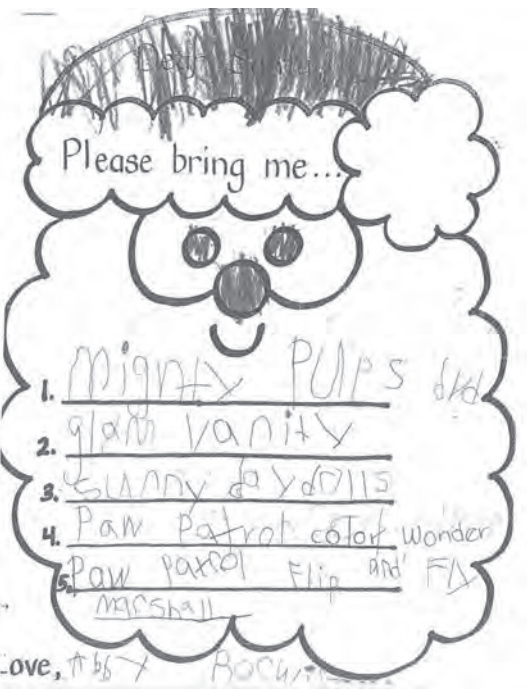 Dear Santa,
Please bring me...
1. Mighty PUPS dvd
2. glam vanity
3. sunny day dolls
4. Paw Patrol color wonder
5. Paw patrol Flip and Fly
marshall
Love, Abby